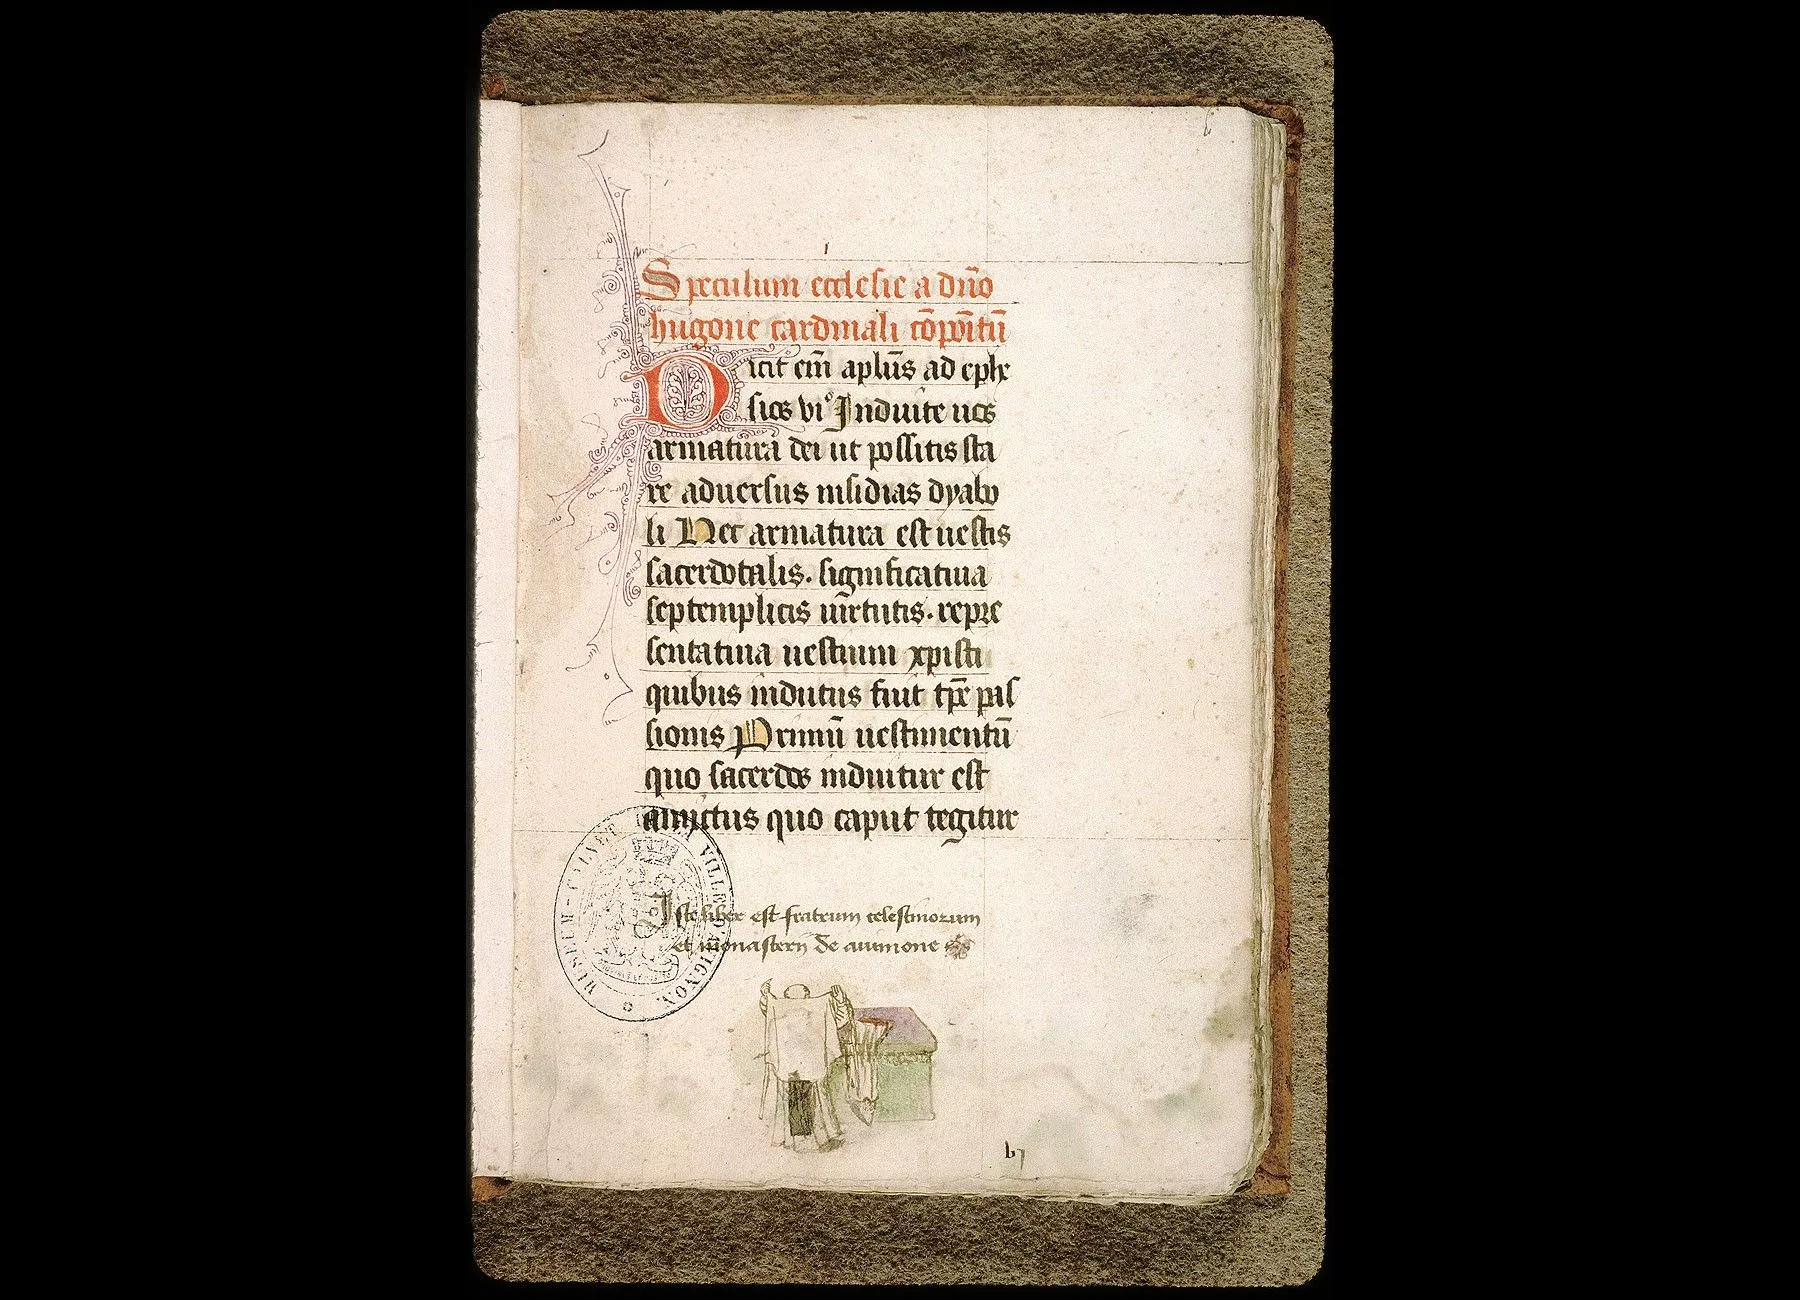 Speculum ecclesie a dn̄o
hugone cardinali cōpoītū
Dicit em̄ aplūs ad ephe
sios vi° Induite uos
armaturā dei ut possitis sta
re aduersus insidias dyabo
li Hec armatura est uestis
sacerdotalis. significatiua
septemplicis uirtutis. repre
sentatiua uestium xpisti
quibus indutus fuit tpē pas
sionis Primū uestimentū
quo sacerdos induitur est
amictus quo caput tegitur
Iste liber est fratrum celestinorum
et monasterij de auinione
MUSEUM-CALVET VILLE D'AVIGNON
b1